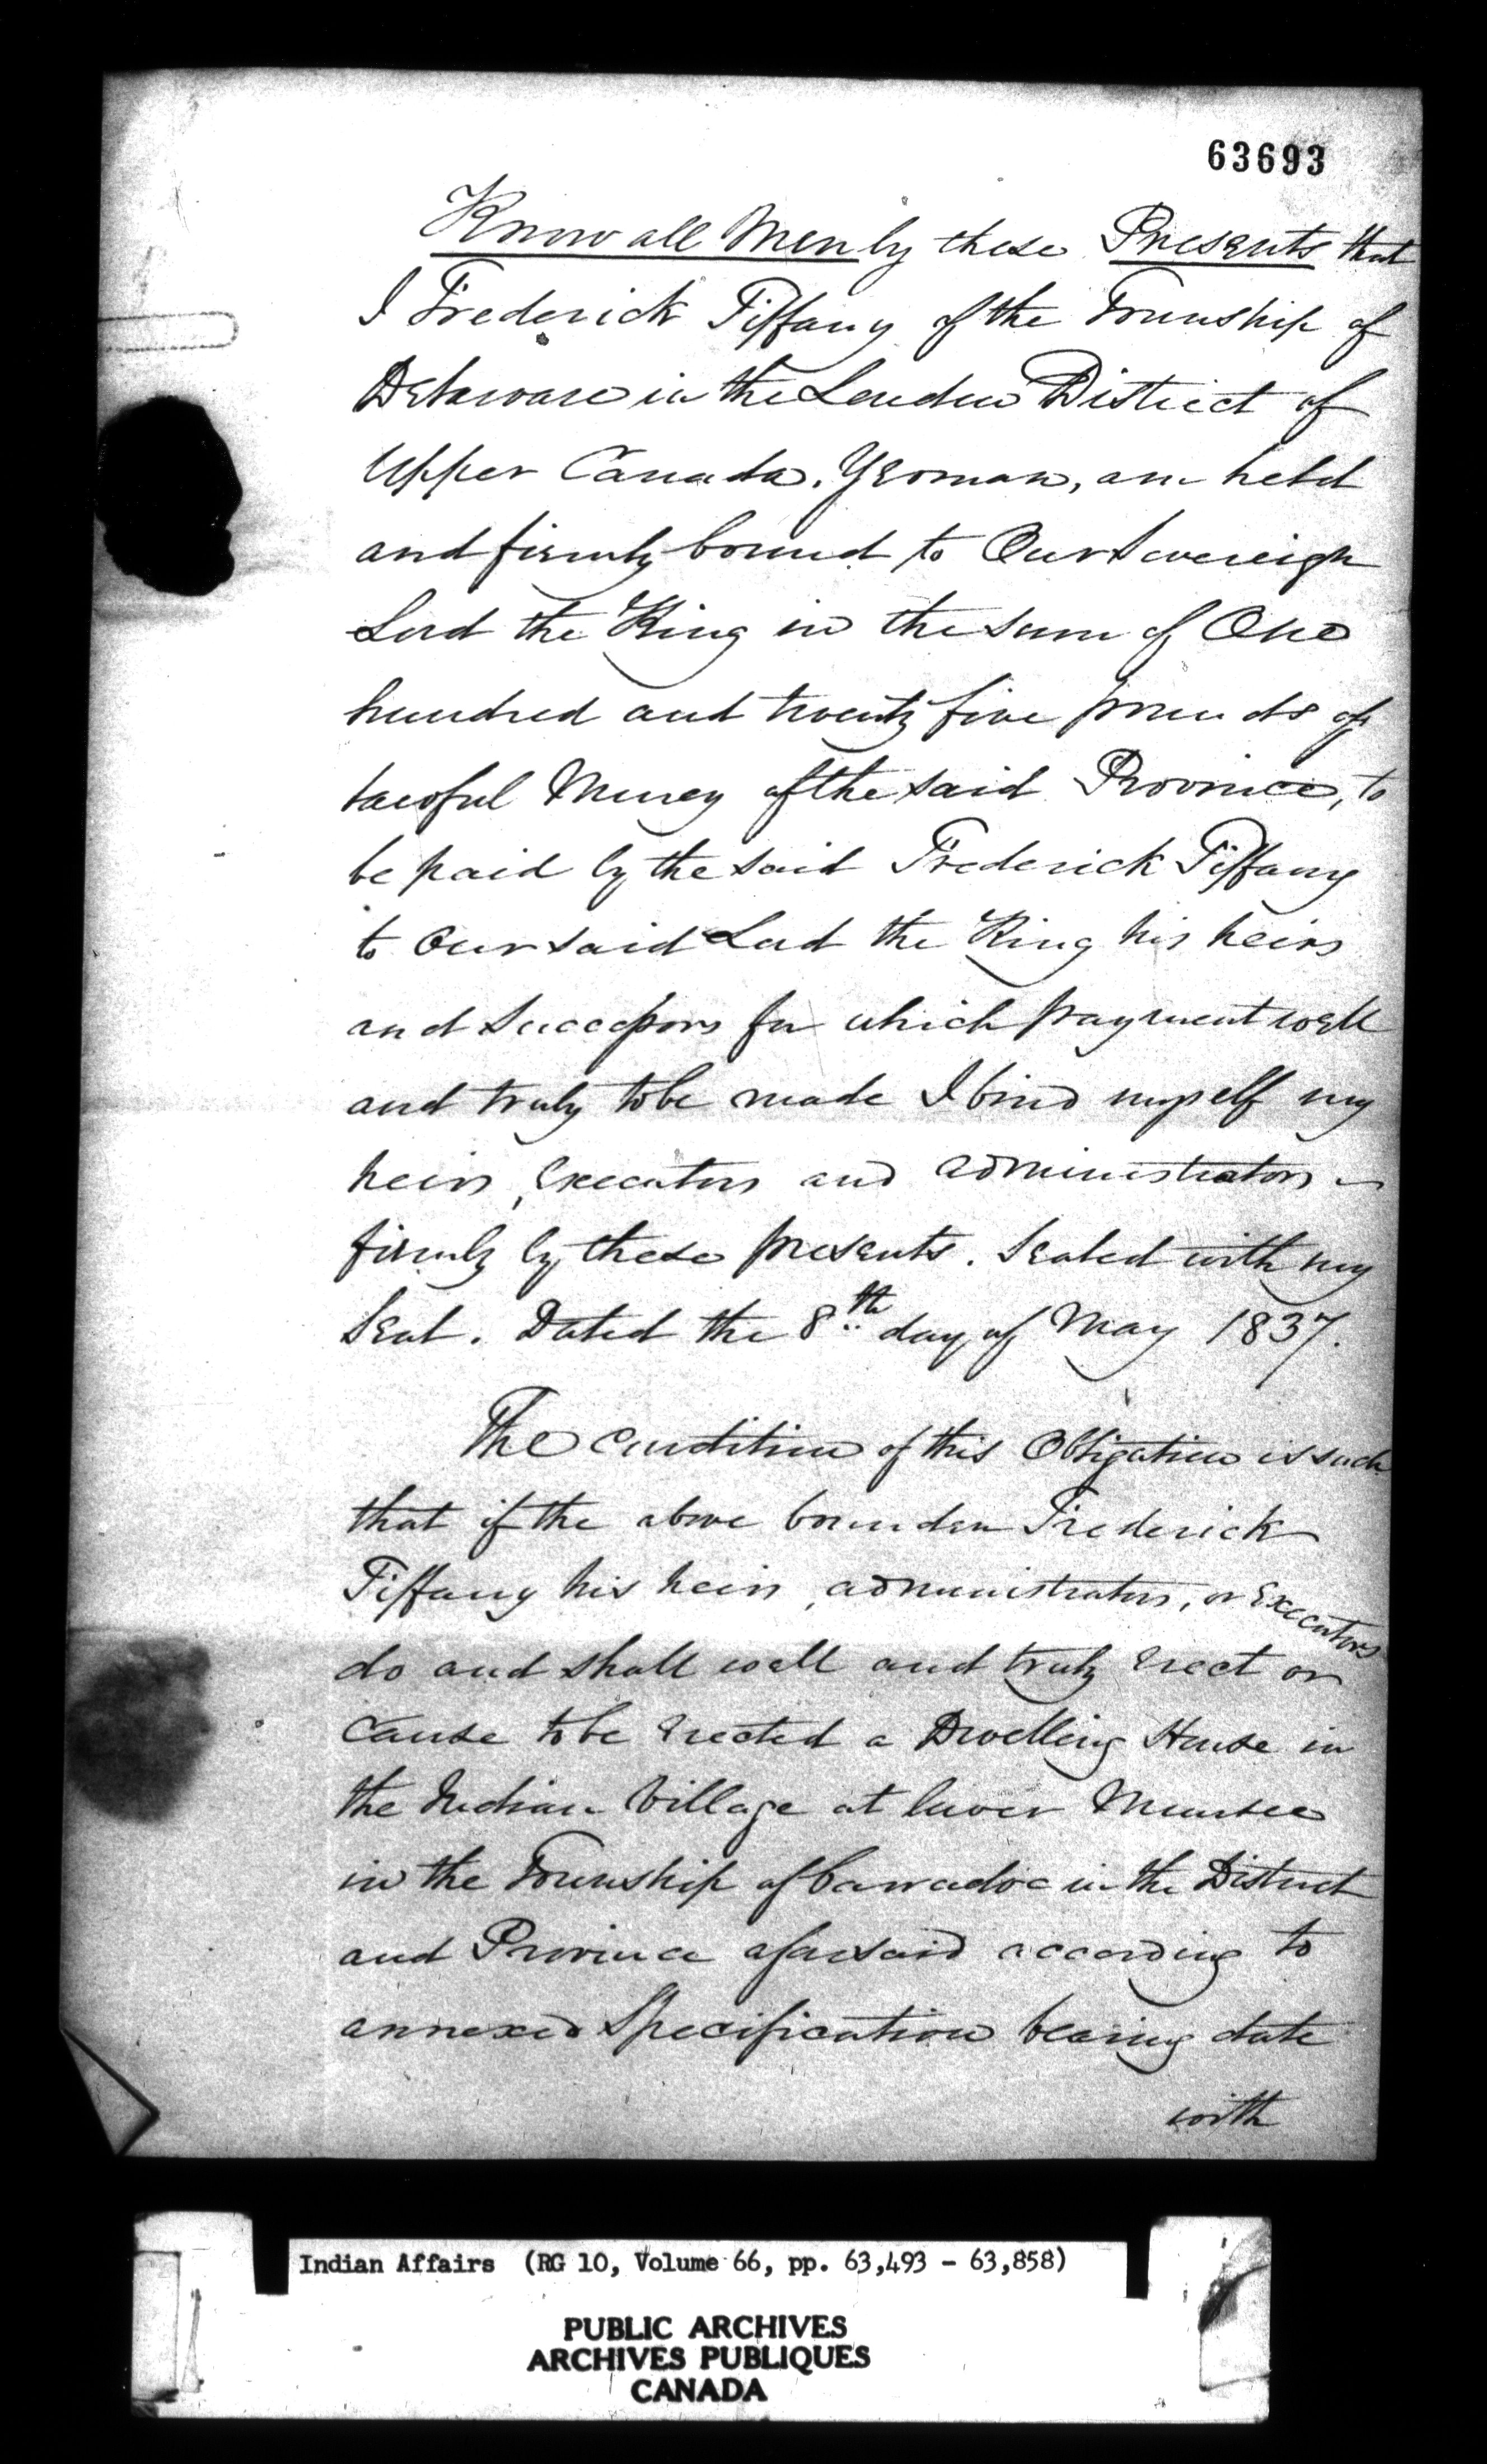 63693
Know all Men by these Presents that
I Frederick Tiffany of the Township of
Delaware in the London District of
Upper Canada. Yeoman, am held
and firmly bound to Our Sovereign
Lord the King in the sum of One
hundred and twenty five pounds of
lawful Money of the said Province, to
be paid by the said Frederick Tiffany
to Our said Lord the King his heirs
and Successors for which payment well
and truly to be made I bind myself my
heirs, Executors and administrators
firmly by these presents. Sealed with my
Seal. Dated the 8th day of May 1837.
The Condition of this Obligation is such
that if the above bounden Frederick
Tiffany his heirs, administrators, or Executors
do and shall well and truly Erect or
Cause to be Erected a Dwelling House in
the Indian Village at lower Munsee
in the Township of Carradoc in the District
and Province aforesaid according to
annexed Specification bearing date
with
Indian Affairs (RG 10, Volume 66, pp. 63,493 - 63,858)
PUBLIC ARCHIVES
ARCHIVES PUBLIQUES
CANADA